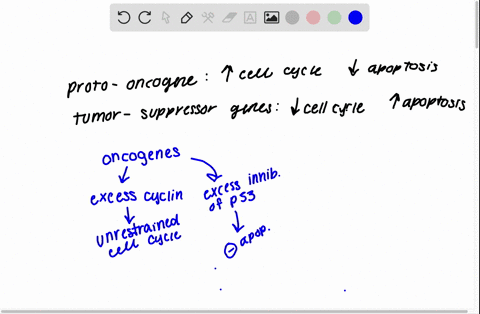 proto-oncogne: ↑ cell cycle ↓ apoptosis
tumor-suppressor genes: ↓ cell cycle ↑ apoptosis
oncogenes
excess cyclin
unrestrained
cell cycle
excess innib.
of p53
⊖ apop.